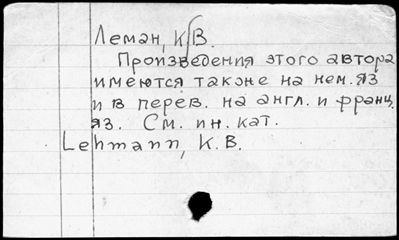 Леман, К.В.
Произведения этого автора
имеются также на нем. яз
и в перев. на англ. и франц.
яз. См. ин. кат.
Lehmann, K.B.